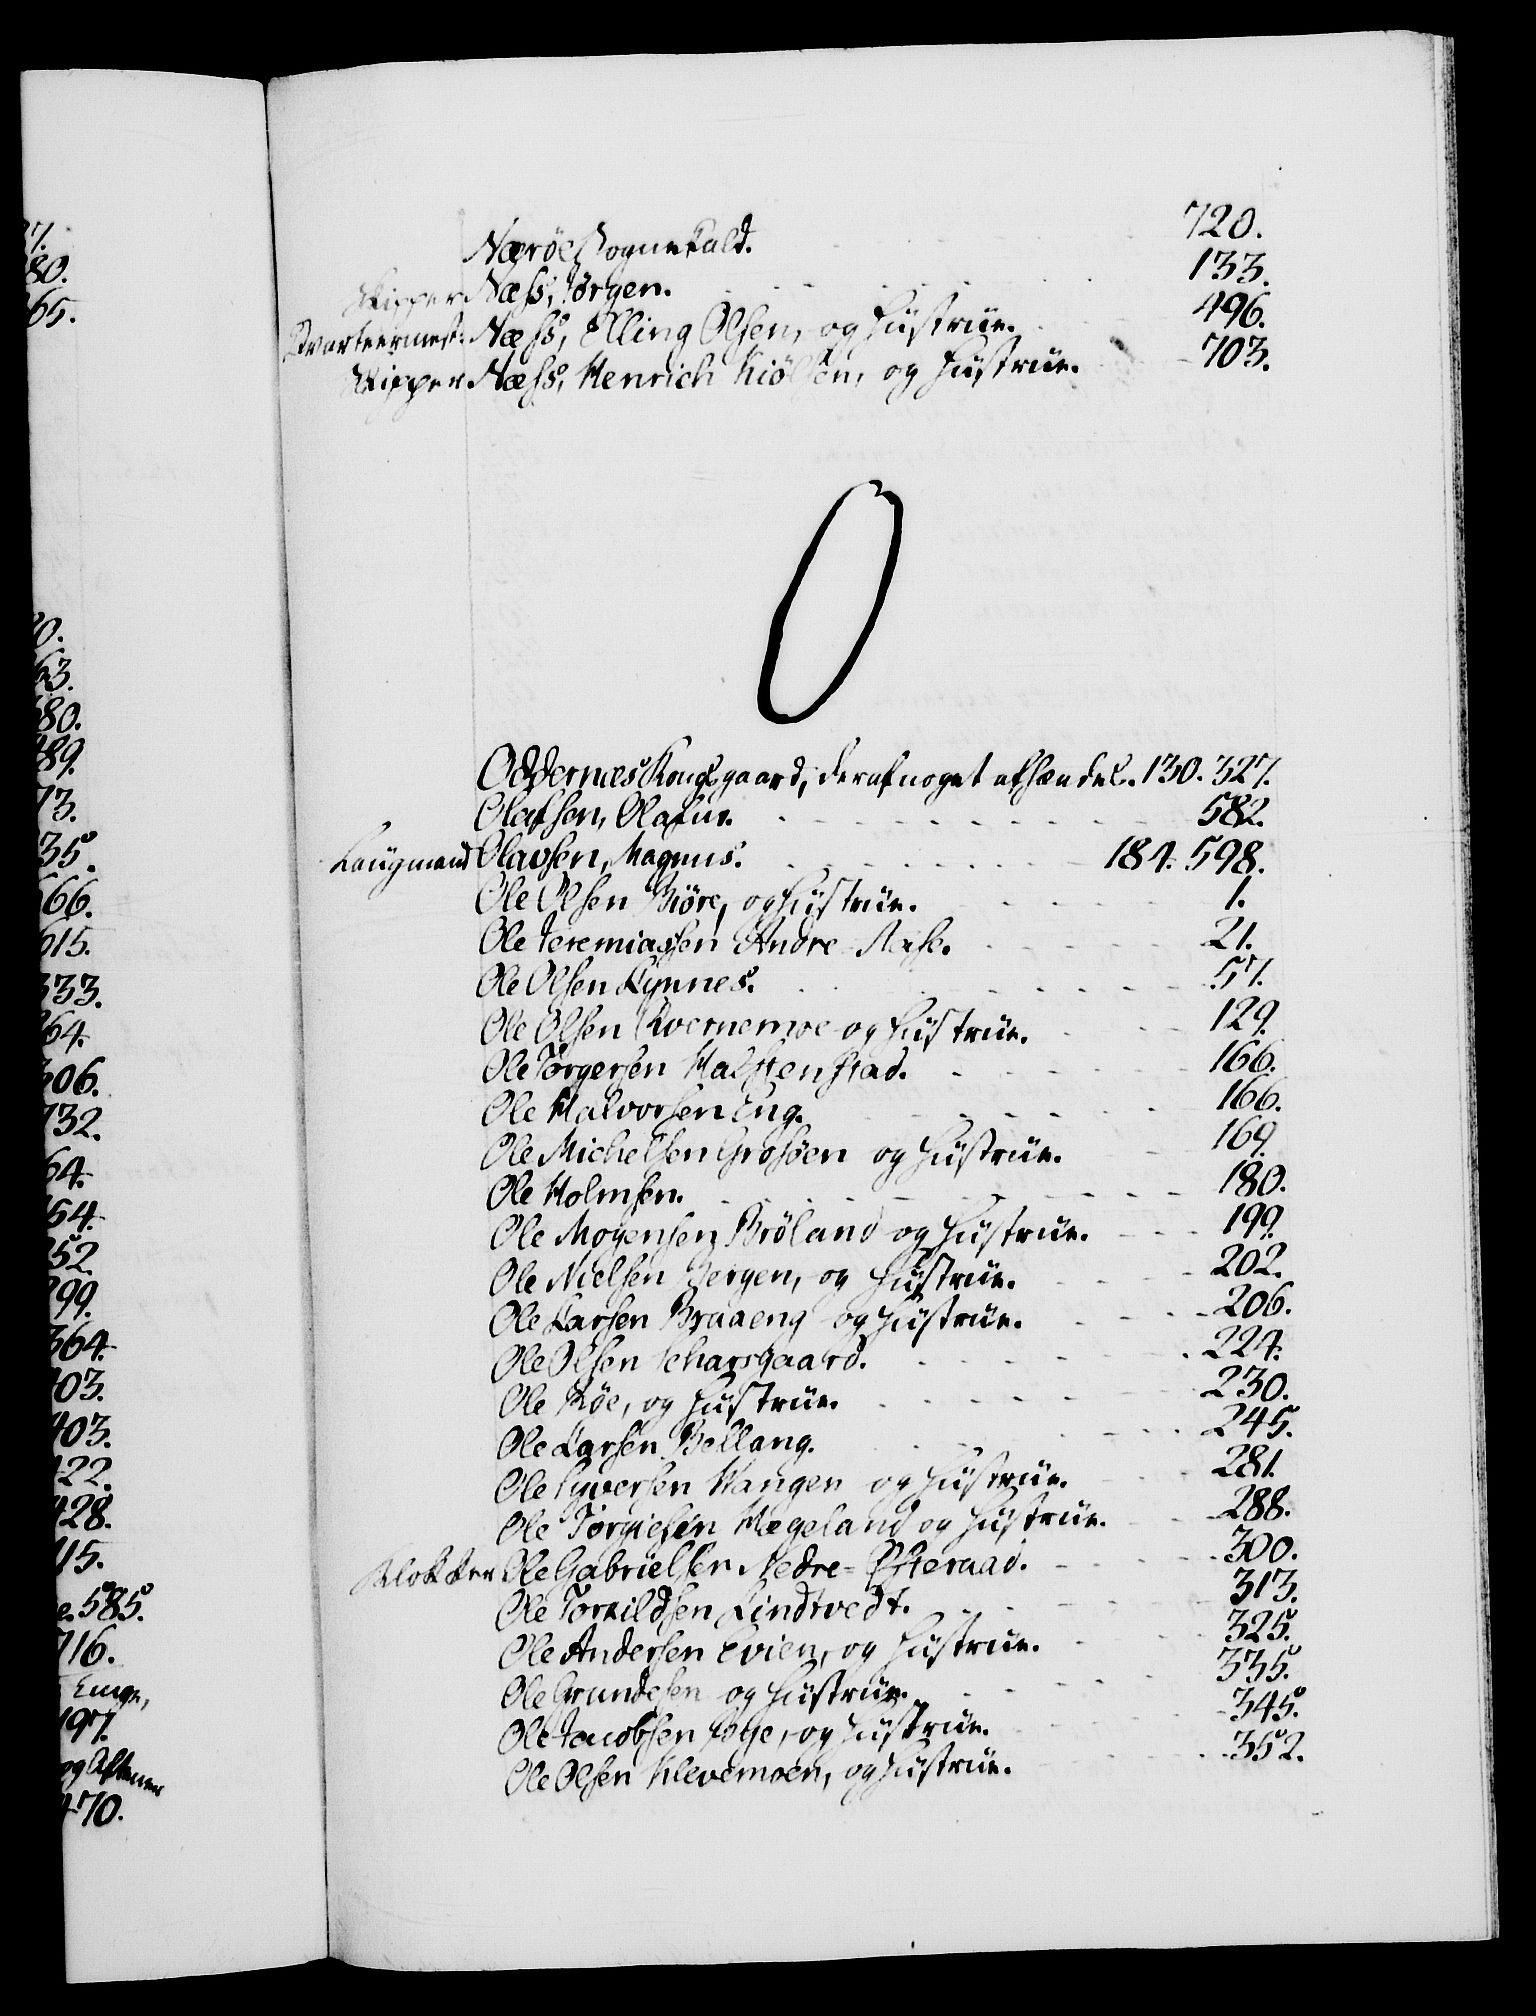 Nærøe Sognekald. 720.
Skipper Næss, Jörgen. 133.
Qvarteermest: Næss, Elling Olsen, og Hustrue. 496.
Skipper Næss, Henrich Kiölsen, og Hustrue. 703.
O
Oddernes Kongsgaard, deraf noget afhændet. 130. 327.
Olafsen, Olafur. 582.
Laugmand Olavsen, Magnus. 184. 598.
Ole Olsen Biöre, og Hustrue. 1.
Ole Jeremiassen Andre 21.
Ole Olsen Lynnes. 57.
Ole Olsen Kvernemoe og Hustrue. 129.
Ole Törgersen Halstenstad. 166.
Ole Halvorsen Eng. 166.
Ole Michelsen Grosöen og Hustrue. 169.
Ole Holmsen. 180.
Ole Mogensen Bröland og Hustrue. 199.
Ole Nielsen Bergen, og Hustrue. 202.
Ole Larsen Braaeng og Hustrue. 206.
Ole Olsen Scharsgaard. 224.
Ole Röe, og Hustrue. 230.
Ole Larsen Bellang. 245.
Ole Syversen Wangen og Hustrue. 281.
Ole Torgiesen Hægeland og Hustrue. 288.
Klokker Ole Gabrielsen Nedre-Öfteraad. 300.
Ole Torkildsen Lindtvedt. 313.
Ole Andersen Evien, og Hustrue. 325.
Ole Grundesen og Hustrue. 335.
Ole Jacobsen og Hustrue. 345.
Ole Olsen Klevemoen, og Hustrue. 352.